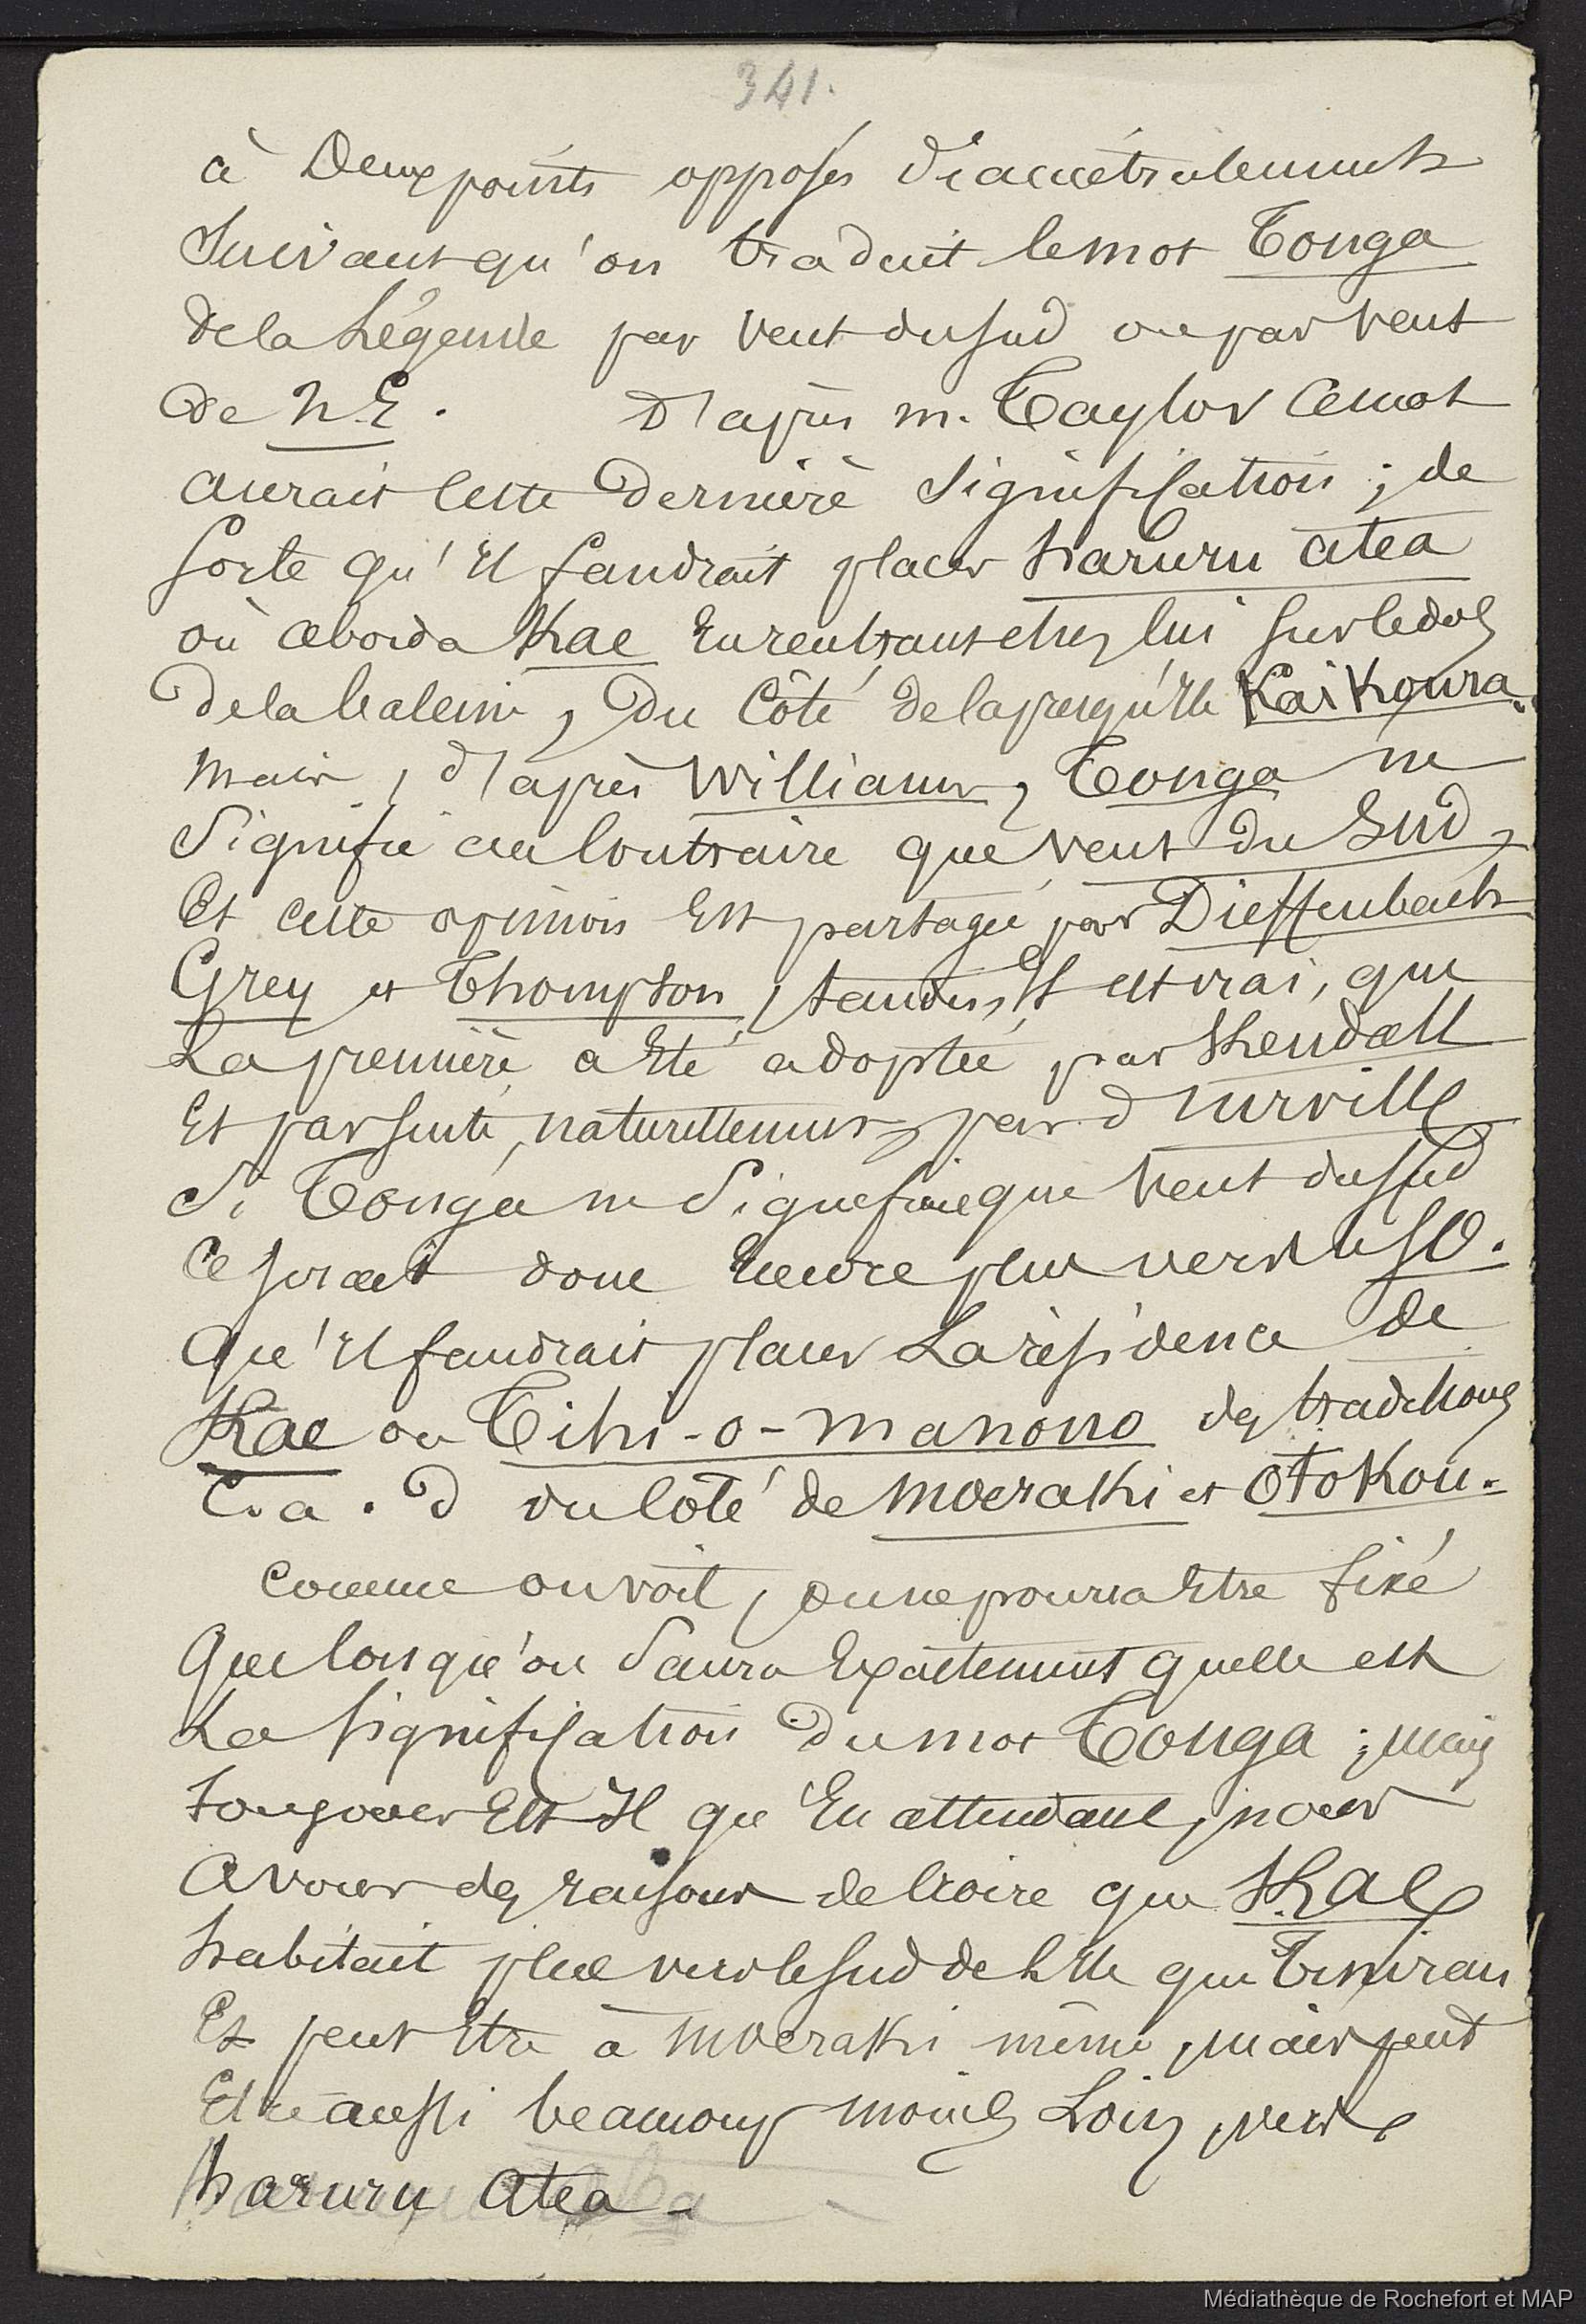 341.
à Deux points opposés diamétralement
Suivant qu'on traduit le mot Tonga
de la Légende par vent du sud ou par vent
de N.E. D'après m. Taylor ce mot
aurait cette dernière signification ; de
sorte qu'il faudrait placer haruru atea
où aborda Kae en rentrant chez lui sur le dos
de la baleine, du côté de la presqu'ile Kaikoura.
mais, d'après Williams, Tonga ne
signifie au contraire que vent du Sud,
Et cette opinion est partagée par Dieffenbach
Grey et Thompson, tandis, il est vrai, que
La première a été adoptée par Kendall
Et par suite, naturellement, par d'urville
Si Tonga ne signifiait que vent du sud
ce serait donc encore plus vers le SO.
qu'il faudrait placer La résidence de
Kae ou Tihi-o-manono des traditions
C. a. d du côté de moeraki et Otokou.
comme on voit, on ne pourra Etre fixé
que lorsqu'on saura Exactement quelle est
La signification du mot Tonga ; mais
toujours Est Il qu'En attendant, nous
avons des raisons de croire que Kae
habitait plus vers le sud de l'Ile que Tinirau
Et peut Etre à moeraki même, mais peut
Etre aussi beaucoup moins Loin, vers
haruru atea -
Médiathèque de Rochefort et MAP